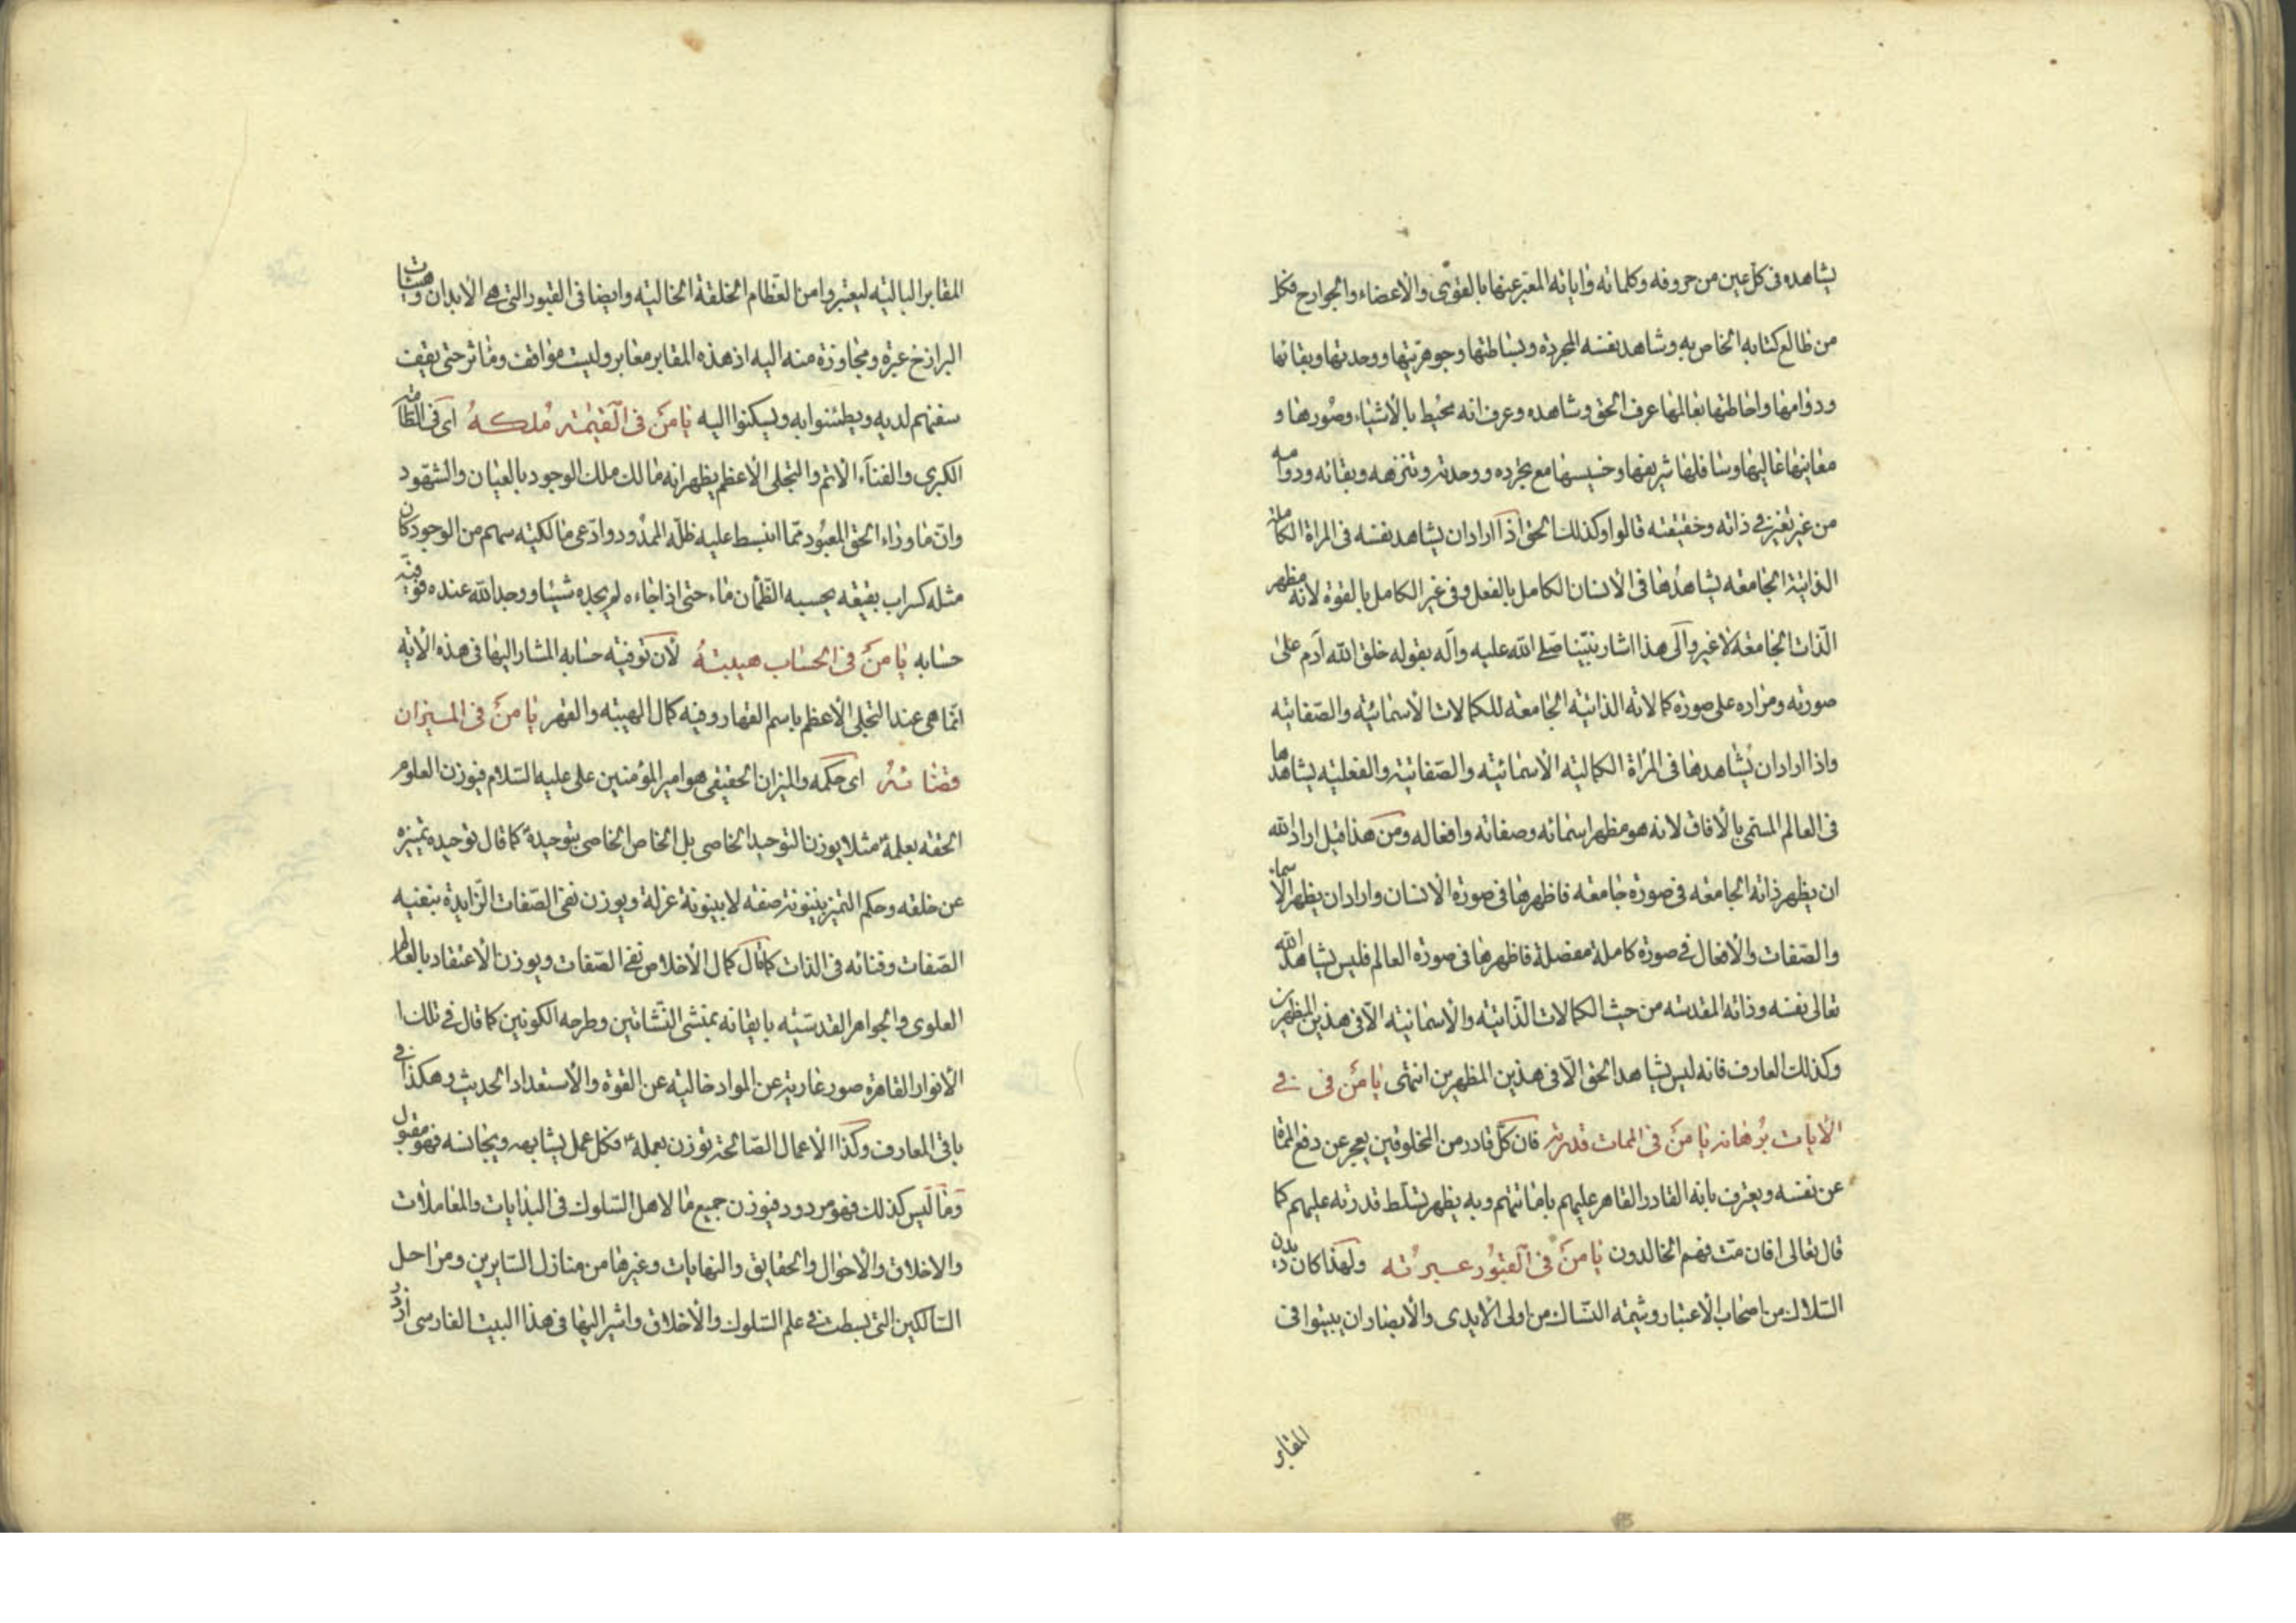 يشاهده فى كل عين من حروفه وكلماته واياته المعبر عنها بالقوى والاعضاء والجوارح فكل
من طالع كتابه الخاص به وشاهد نفسه المجردة وبساطتها وجوهريتها ووحدتها وبقائها
ودوامها واحاطتها بعالمها عرف الحق وشاهده وعرف انه محيط بالاشياء وصورها و
معاينها عاليها وسافلها شريفها وخسيسها مع تجرده ووحدته وتنزهه وبقائه ودوامه
من غير تغير فى ذاته وحقيقته قالوا وكذلك الحق اذا اراد ان يشاهد نفسه فى المراة الكاملة
الذاتية الجامعه يشاهدها فى الانسان الكامل بالفعل وفى غير الكامل بالقوة لانه مظهر
الذات الجامعة لا غير والى هذا اشار نبينا صلى الله عليه وآله بقوله خلق الله آدم على
صورته ومراده على صورة كمالاته الذاتية الجامعة للكمالات الاسمائية والصفاتيه
واذا اراد ان يشاهدها فى المرأة الكمالية الاسمائيته والصفاتيه والفعليه يشاهدها
فى العالم المسمى بالافاق لانه هو مظهر اسمائه وصفاته وافعاله ومن هذا قيل اراد الله
ان يظهر ذاته الجامعه فى صورة جامعه فاظهرها فى صورة الانسان واراد ان يظهر الاسماء
والصفات والافعال فى صورة كاملة مفصلة فاظهرها فى صورة العالم فليس يشاهد الله
تعالى نفسه وذاته المقدسه من حيث الكمالات الذاتيه والاسمائيه الا فى هذين المظهرين
وكذلك العارف فانه ليس يشاهد الحق الا فى هذين المظهرين انتهى يا من فى فى
الايات برهانه يا من فى الممات قدرته فان كل قادر من المخلوقين يعجز عن دفع المما
عن نفسه ويعترف بانه القادر القاهر عليهم باماتتهم وبه يظهر تسلط قدرته عليهم كما
قال تعالى افان مت فهم الخالدون يا من فى القبور عبرته ولهذا كان ديدن
السلاك من اصحاب الاعتبار وشيمة النساك من اولى الايدى والابصار ان يبيتوا فى
المقابر
المقابر الباليه ليعتبروا من العظام الخلقة الخاليه وايضا فى القبور التى هى الابدان وهيئات
البرازخ عبرة ومجاوزة منه اليه اذ هذه المقابر معابر وليست مواقف وماثر حتى يقف
سفنهم لديه ويطمئنوا به ويسكنوا اليه يا من فى القيمة ملكه اى فى الطامه
الكبرى والفناء الاتم والتجلى الاعظم يظهر انه مالك ملك الوجود بالعيان والشهود
وان ما وراء الحق المعبود مما انبسط عليه ظله الممدود وادعى مالكيه سهم من الوجود كان
مثله كسراب بقيعه يحسبه الظمأن ماء حتى اذا جاءه لم يجده شيئا ووجد الله عنده فوفيه
حسابه يا من فى الحساب هيبته لان توفيه حسابه المشار اليها فى هذه الايه
انما هى عند التجلى الاعظم باسم القهار وفيه كمال الهيبه والقهر يا من فى الميزان
قضائه اى حكمه والميزان الحقيقى هو امير المؤمنين على عليه السلام فيوزن العلوم
الحقه بعلمه مثلا يوزن التوحيد الخاصى بل الخاص الخاصى بتوحيده كما قال توحيده تميزه
عن خلقه وحكم التميز بينونة صفه لا بينونة عزلة ويوزن نفى الصفات الزايدة بنفيه
الصفات وفنائه فى الذات كما قال كمال الاخلاص نفى الصفات ويوزن الاعتقاد بالعالم
العلوى والجواهر القدسيه بايقانه بمنشئ النشاتين وطرحه الكونين كما قال فى تلك ا
الانوار القاهرة صور عارية عن المواد خاليه عن القوة والاستعداد الحديث وهكذا فى
باقى المعارف وكذا الاعمال الصالحة توزن بعمله فكل عمل يشابهه ويجانسه فهو مقبول
وما ليس كذلك فهو مردود فيوزن جميع ما لاهل السلوك فى البدايات والمعاملات
والاخلاق والاحوال والحقايق والنهايات وغيرها من منازل السايرين ومراحل
السالكين التى بسطت فى علم السلوك والاخلاق واشير اليها فى هذا البيت الفارسى